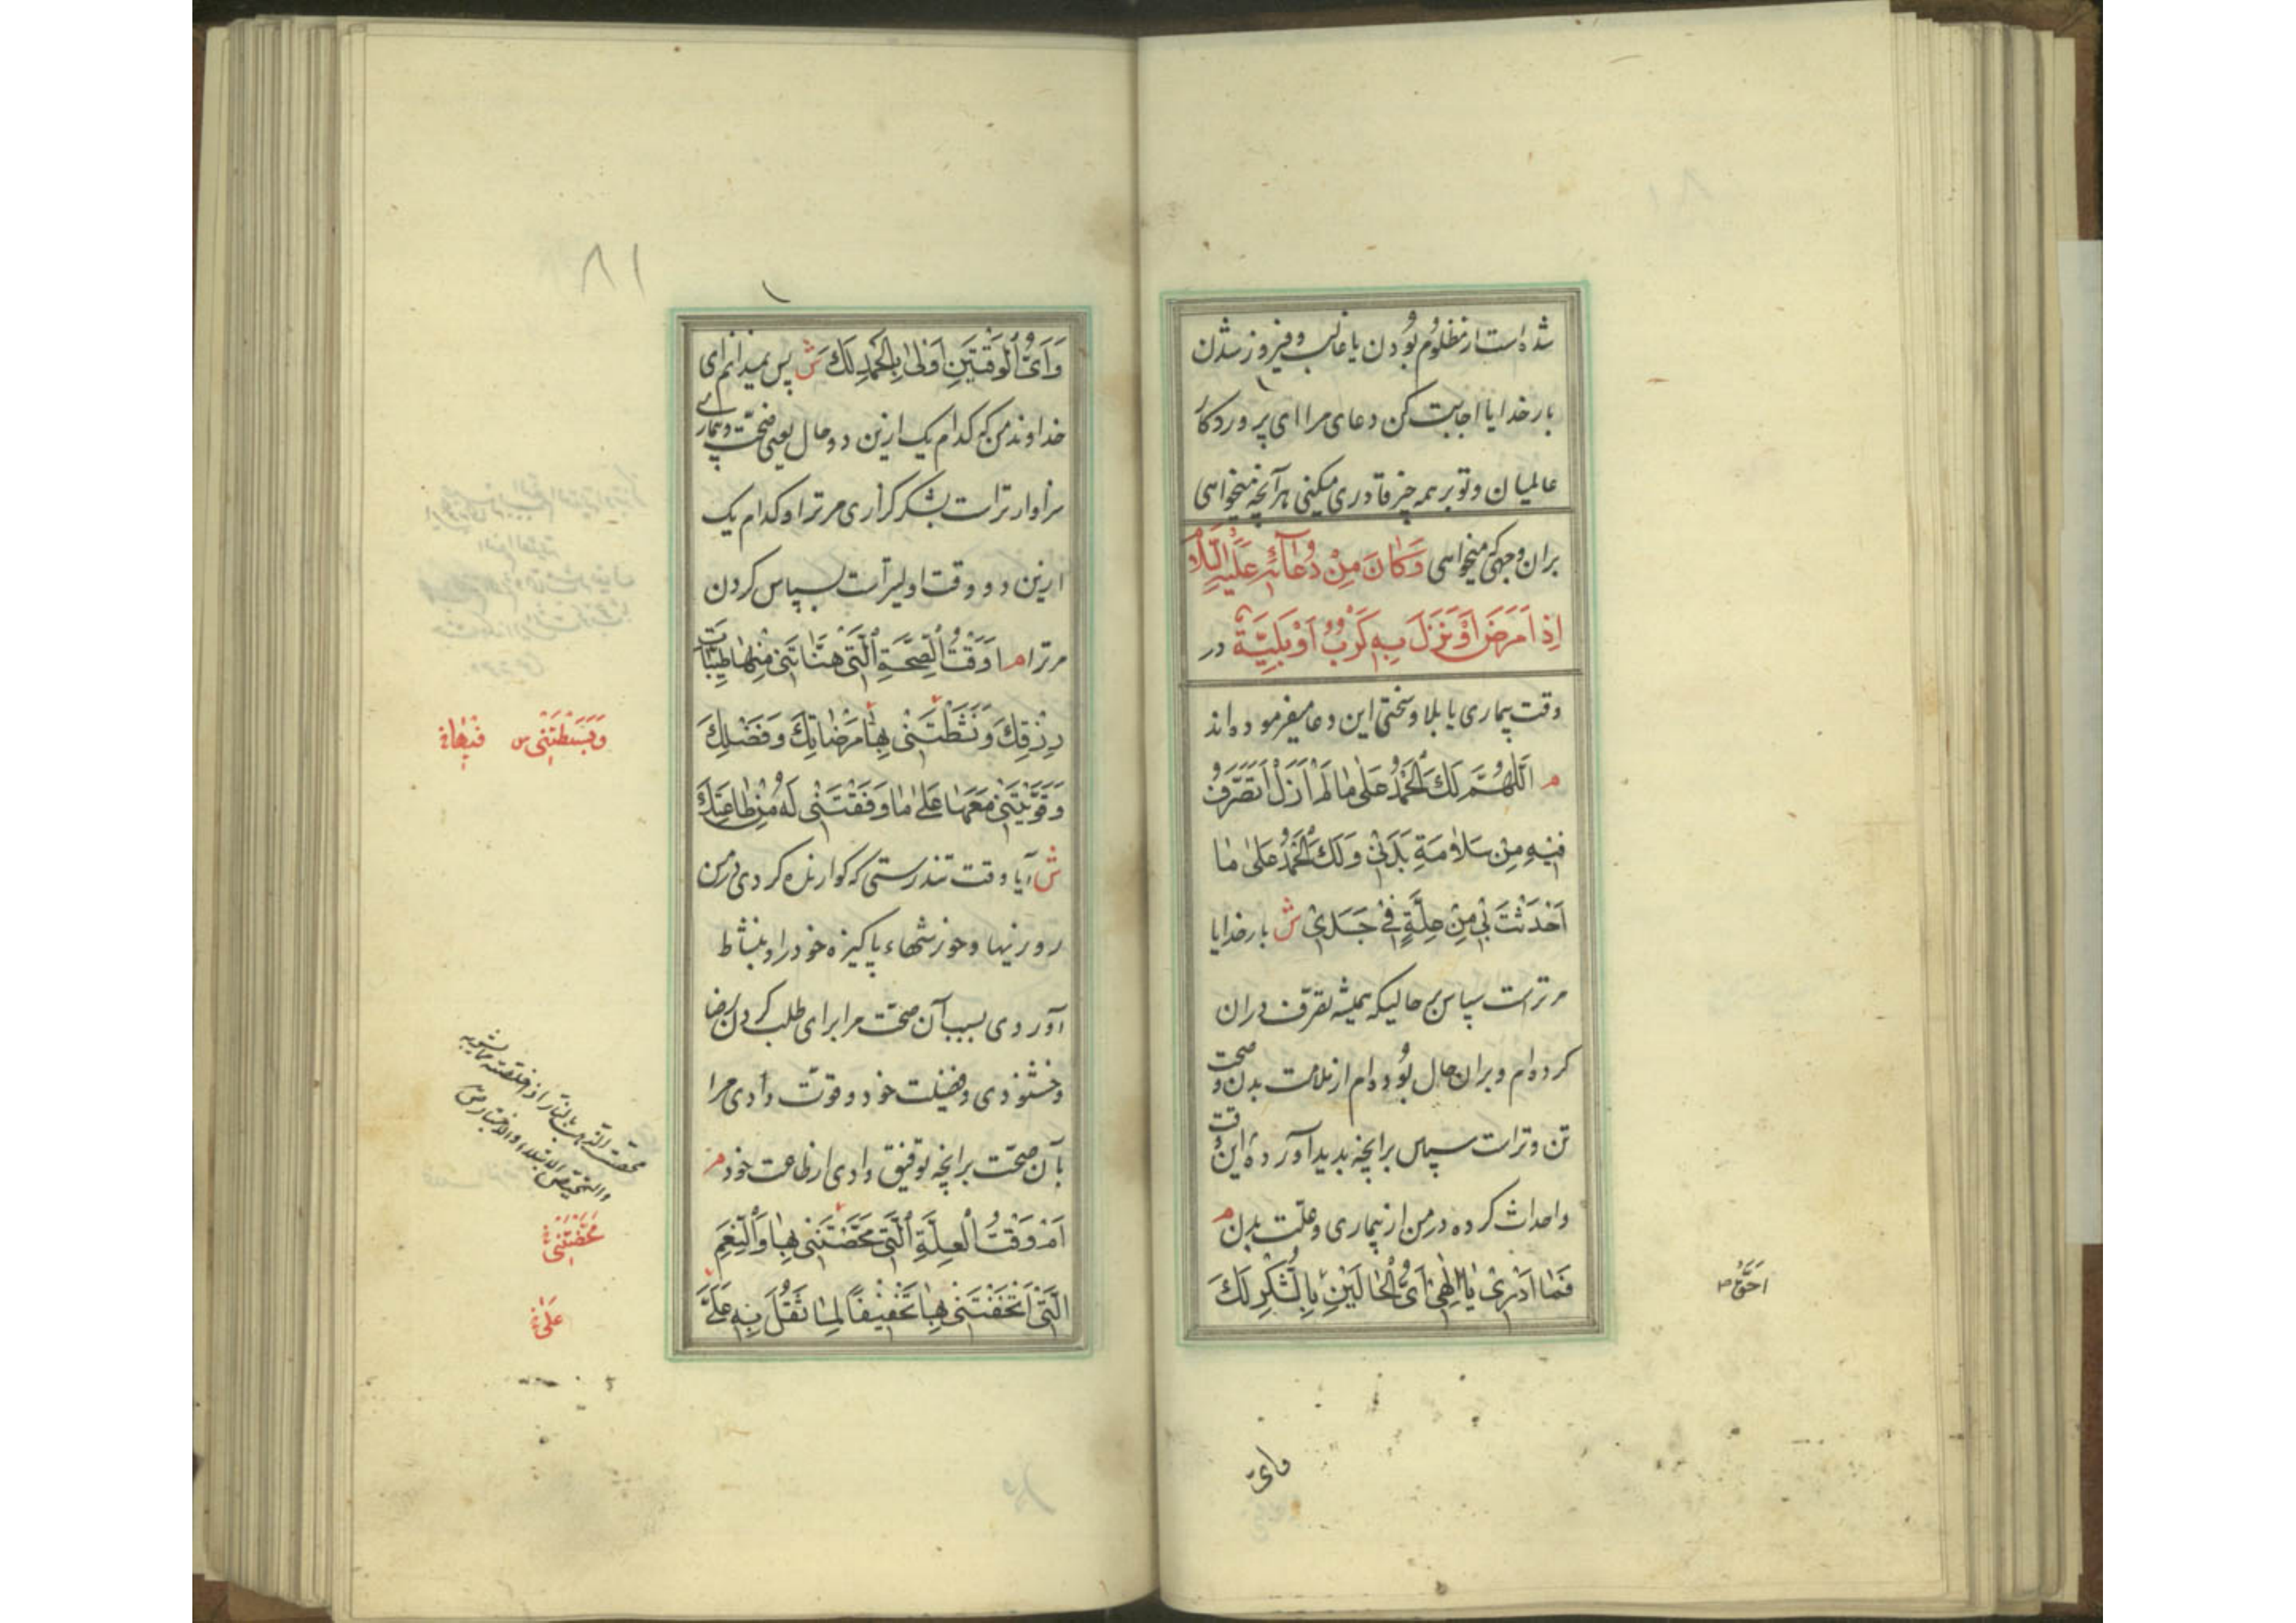 شده است از مظلوم بودن یا غالب و فیروز شدن
بار خدایا اجابت کن دعای مرا ای پروردکار
عالمیان و تو بر همه چیز قادری میکنی هر آنچه میخواهی
بران وجهی که میخواهی وَكَانَ مِنْ دُعَائِهِ عَلَيْهِ السَّلَامُ
إِذَا مَرِضَ أَوْ نَزَلَ بِهِ كَرْبٌ أَوْ بَلِيَّةٌ در
وقت بیماری یا بلا و سختی این دعا میفرموده‌اند
م اَللّٰهُمَّ لَكَ الْحَمْدُ عَلٰى مَا لَمْ اَزَلْ اَتَصَرَّفُ
فِيْهِ مِنْ سَلَامَةِ بَدَنِيْ وَلَكَ الْحَمْدُ عَلٰى مَا
اَحْدَثْتَ بِيْ مِنْ عِلَّةٍ فِيْ جَسَدِيْ ش بار خدایا
مر تراست سپاس بر حالیکه همیشه تصرف دران
کرده‌ام و بران حال بوده‌ام از سلامت بدن و صحت
تن و تراست سپاس برانچه بدید آورده
و احداث کرده در من از بیماری و علت بدن م
فَمَا اَدْرِيْ يَا اِلٰهِيْ اَيُّ الْحَالَيْنِ بِالشُّكْرِ لَكَ
اَحَقُّ
وایّ
٨١
وَاَيُّ الْوَقْتَيْنِ اَوْلٰى بِالْحَمْدِ لَكَ ش پس نمیدانم ای
خداوند من که کدام یک ازین دو حال یعنی صحّت و بیماری
سزاوارتر است بشکر کزاری مر ترا و کدام یک
ازین دو وقت اولیتر است بسپاس کردن
مر ترا م اَوَقْتُ الصِّحَّةِ الَّتِيْ هَنَّأْتَنِيْ فِيْهَا طَيِّبَاتِ
رِزْقِكَ وَنَشَّطْتَنِيْ بِهَا لِابْتِغَاءِ مَرْضَاتِكَ وَفَضْلِكَ
وَقَوَّيْتَنِيْ مَعَهَا عَلٰى مَا وَفَّقْتَنِيْ لَهُ مِنْ طَاعَتِكَ
ش آیا وقت تندرستی که کوارنده کردی در من
روزیها و خورشهاء پاکیزه خود را و بنشاط
آوردی بسبب آن صحّت مرا برای طلب کردن رضا
و خشنودی و فضیلت خود و قوّت دادی مرا
با آن صحّت برانچه توفیق دادی از طاعت خود م
اَمْ وَقْتُ الْعِلَّةِ الَّتِيْ مَحَّصْتَنِيْ بِهَا وَالنِّعَمِ
الَّتِيْ اَتْحَفْتَنِيْ بِهَا تَخْفِيْفًا لِمَا ثَقُلَ بِهِ عَلَيَّ
وَبَسَطْتَنِيْ س فِيْهَا
محّصت الذهب بالنار اذا خلّصته مما يشوبه
والتمحيص الابتلاء والاختبار ص
مَحَّضْتَنِيْ
عَلٰى